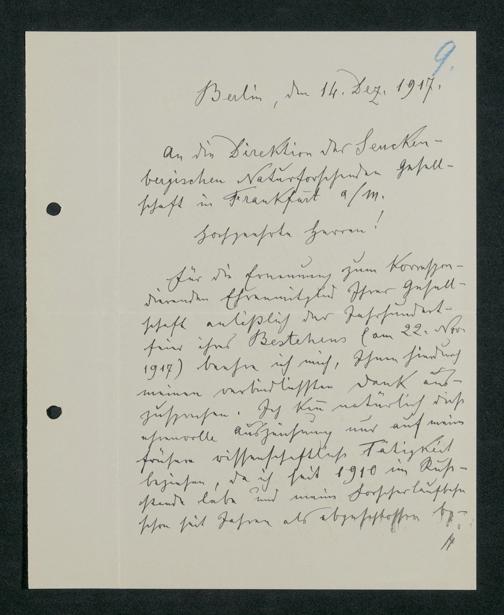 9.
Berlin, den 14. Dez. 1917.
An die Direktion der Sencken-
bergischen Naturforschenden Gesell-
schaft in Frankfurt a/M.
Hochgeehrte Herren!
Für die Ernennung zum Korrespon-
dierenden Ehrenmitglied Ihrer Gesell-
schaft anläßlich der Jahrhundert-
feier ihres Bestehens (am 22. Nov.
1917) beehre ich mich, Ihnen hiedurch
meinen verbindlichsten Dank aus-
zusprechen. Ich kann natürlich diese
ehrenvolle Auszeichnung nur auf meine
frühere wissenschaftliche Tätigkeit
beziehen, da ich seit 1910 im Ruhe-
stande lebe und meine Forscherlaufbahn
schon seit Jahren als abgeschlossen be-